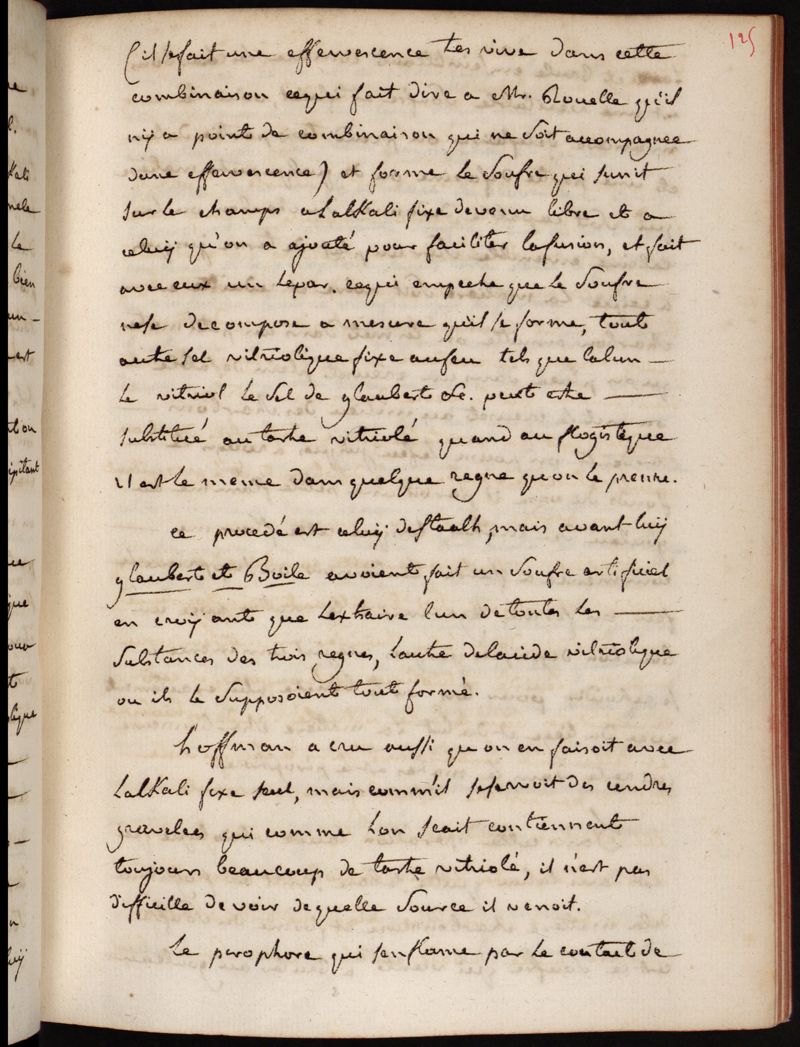 125
(il se fait une effervescence tres vive dans cette
combinaison cequi fait dire a Mr. Rouelle qu'il
n'y a point de combinaison qui ne soit accompagnee
dune effervescence) et forme le soufre qui sunit
sur le champs a lalKali fixe devenu libre et a
celuy qu'on a ajouté pour faciliter lafusion, et fait
avec eux un hepar. cequi empeche que le soufre
nese decompose a mesure quil se forme, tout
autre sel vitriolique fixe aufeu tels que lalun —
le vitriol le sel de glaubert &c. peut estre —
substitué autartre vitriolé quand au flogistique
il est le meme dans quelque regne qu'on le prenne.
ce procedé est celuy destaalh, mais avant luy
glaubert et Boile avoient fait un soufre artificiel
en croyant que lextraire lun de toutes les —
substances des trois regnes, lautre delacide vitriolique
ou ils le supposoient tout formé.
hoffman a cru aussi qu on en faisoit avec
lalKali fixe seul, mais comm'il seservoit des cendres
gravelees qui comme lon scait contiennent
toujours beaucoup de tartre vitriolé, il n'est pas
difficille de voir de quelle source il venoit.
Le pirophore qui senflame par le contact de